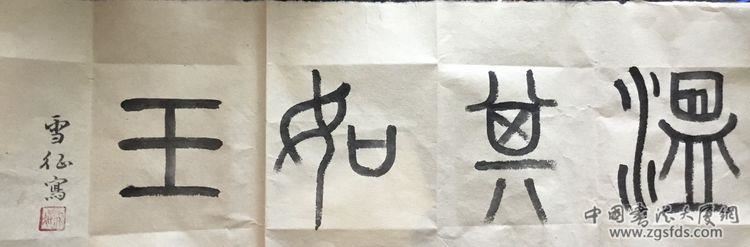 溫其如玉
雪征寫
中國書法大厦網
www.zgsfds.com